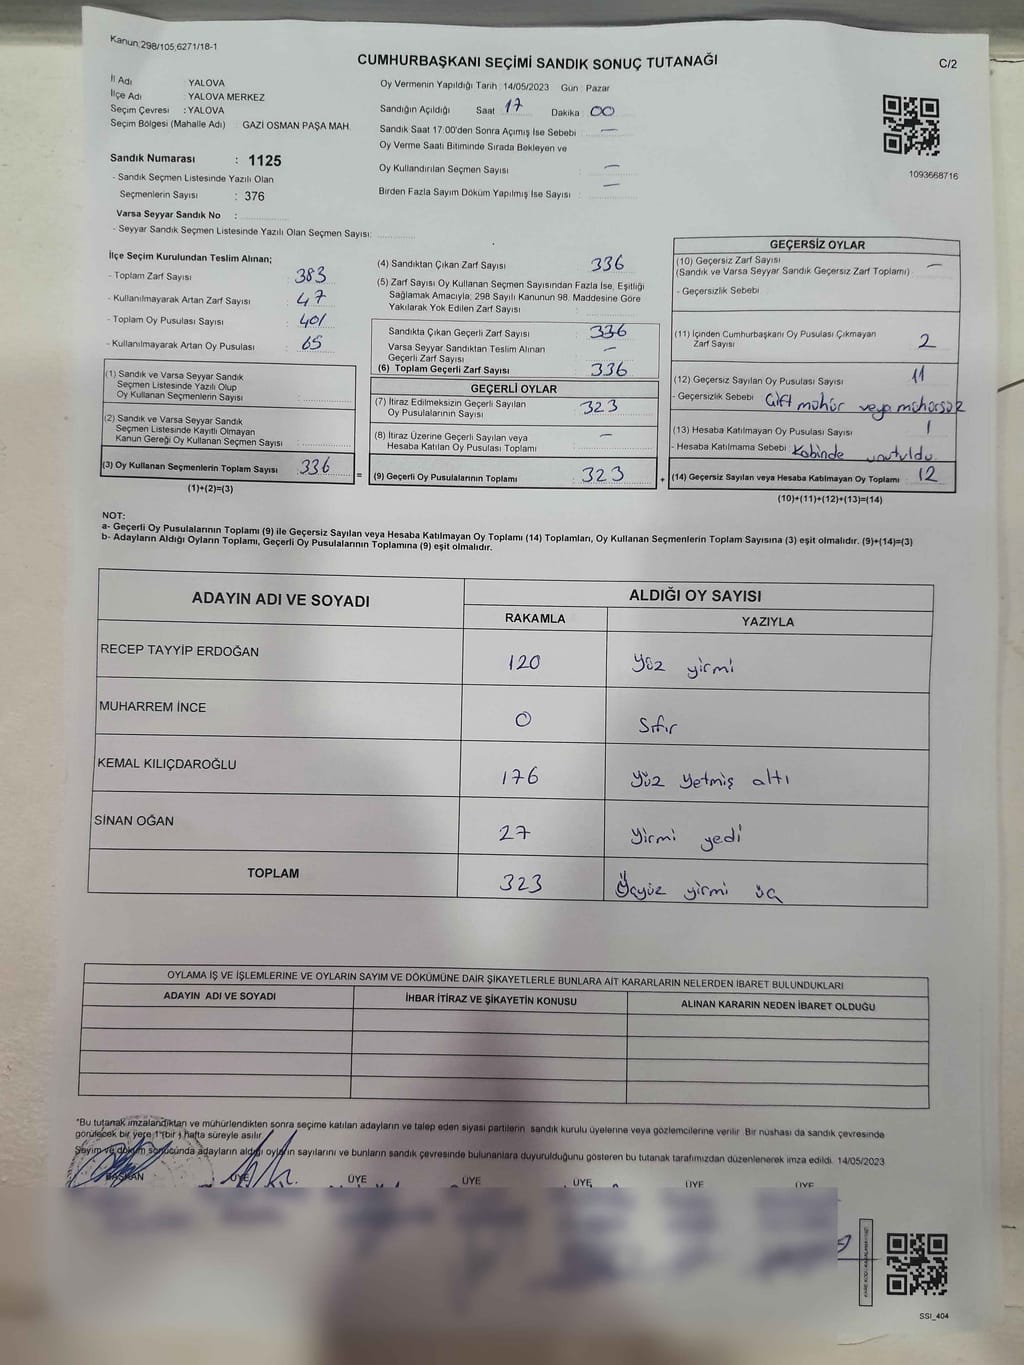 Kanun;298/105,6271/18-1
CUMHURBAŞKANI SEÇİMİ SANDIK SONUÇ TUTANAĞI
C/2
İl Adı : YALOVA
İlçe Adı : YALOVA MERKEZ
Seçim Çevresi : YALOVA
Seçim Bölgesi (Mahalle Adı) GAZİ OSMAN PAŞA MAH.
Sandık Numarası : 1125
- Sandık Seçmen Listesinde Yazılı Olan
Seçmenlerin Sayısı : 376
Varsa Seyyar Sandık No :
- Seyyar Sandık Seçmen Listesinde Yazılı Olan Seçmen Sayısı:
Oy Vermenin Yapıldığı Tarih : 14/05/2023 Gün : Pazar
Sandığın Açıldığı Saat 17 Dakika 00
Sandık Saat 17:00'den Sonra Açımış İse Sebebi : —
Oy Verme Saati Bitiminde Sırada Bekleyen ve
Oy Kullandırılan Seçmen Sayısı : —
Birden Fazla Sayım Döküm Yapılmış İse Sayısı : —
1093668716
İlçe Seçim Kurulundan Teslim Alınan;
- Toplam Zarf Sayısı : 383
- Kullanılmayarak Artan Zarf Sayısı : 47
- Toplam Oy Pusulası Sayısı : 401
- Kullanılmayarak Artan Oy Pusulası : 65
(1) Sandık ve Varsa Seyyar Sandık
Seçmen Listesinde Yazılı Olup
Oy Kullanan Seçmenlerin Sayısı :
(2) Sandık ve Varsa Seyyar Sandık
Seçmen Listesinde Kayıtlı Olmayan
Kanun Gereği Oy Kullanan Seçmen Sayısı :
(3) Oy Kullanan Seçmenlerin Toplam Sayısı : 336
(1)+(2)=(3)
(4) Sandıktan Çıkan Zarf Sayısı : 336
(5) Zarf Sayısı Oy Kullanan Seçmen Sayısından Fazla İse, Eşitliği
Sağlamak Amacıyla; 298 Sayılı Kanunun 98. Maddesine Göre
Yakılarak Yok Edilen Zarf Sayısı :
Sandıkta Çıkan Geçerli Zarf Sayısı : 336
Varsa Seyyar Sandıktan Teslim Alınan
Geçerli Zarf Sayısı : —
(6) Toplam Geçerli Zarf Sayısı : 336
GEÇERLİ OYLAR
(7) İtiraz Edilmeksizin Geçerli Sayılan
Oy Pusulalarının Sayısı : 323
(8) İtiraz Üzerine Geçerli Sayılan veya
Hesaba Katılan Oy Pusulası Toplamı : —
= (9) Geçerli Oy Pusulalarının Toplamı : 323 +
GEÇERSİZ OYLAR
(10) Geçersiz Zarf Sayısı : —
(Sandık ve Varsa Seyyar Sandık Geçersiz Zarf Toplamı)
- Geçersizlik Sebebi
(11) İçinden Cumhurbaşkanı Oy Pusulası Çıkmayan
Zarf Sayısı 2
(12) Geçersiz Sayılan Oy Pusulası Sayısı : 11
- Geçersizlik Sebebi Çift mühür veya mühürsüz
(13) Hesaba Katılmayan Oy Pusulası Sayısı : 1
- Hesaba Katılmama Sebebi Kabinde unutuldu
(14) Geçersiz Sayılan veya Hesaba Katılmayan Oy Toplamı : 12
(10)+(11)+(12)+(13)=(14)
NOT:
a- Geçerli Oy Pusulalarının Toplamı (9) ile Geçersiz Sayılan veya Hesaba Katılmayan Oy Toplamı (14) Toplamları, Oy Kullanan Seçmenlerin Toplam Sayısına (3) eşit olmalıdır. (9)+(14)=(3)
b- Adayların Aldığı Oyların Toplamı, Geçerli Oy Pusulalarının Toplamına (9) eşit olmalıdır.
ADAYIN ADI VE SOYADI
ALDIĞI OY SAYISI
RAKAMLA YAZIYLA
RECEP TAYYİP ERDOĞAN 120 Yüz yirmi
MUHARREM İNCE 0 Sıfır
KEMAL KILIÇDAROĞLU 176 Yüz yetmiş altı
SİNAN OĞAN 27 Yirmi yedi
TOPLAM 323 Üçyüz yirmi üç
OYLAMA İŞ VE İŞLEMLERİNE VE OYLARIN SAYIM VE DÖKÜMÜNE DAİR ŞİKAYETLERLE BUNLARA AİT KARARLARIN NELERDEN İBARET BULUNDUKLARI
ADAYIN ADI VE SOYADI İHBAR İTİRAZ VE ŞİKAYETİN KONUSU ALINAN KARARIN NEDEN İBARET OLDUĞU
*Bu tutanak imzalandıktan ve mühürlendikten sonra seçime katılan adayların ve talep eden siyasi partilerin sandık kurulu üyelerine veya gözlemcilerine verilir. Bir nüshası da sandık çevresinde
görülecek bir yere 1 (bir) hafta süreyle asılır.
Sayım ve döküm sonucunda adayların aldığı oyların sayılarını ve bunların sandık çevresinde bulunanlara duyurulduğunu gösteren bu tutanak tarafımızdan düzenlenerek imza edildi. 14/05/2023
BAŞKAN ÜYE ÜYE ÜYE ÜYE ÜYE ÜYE
SSİ_404